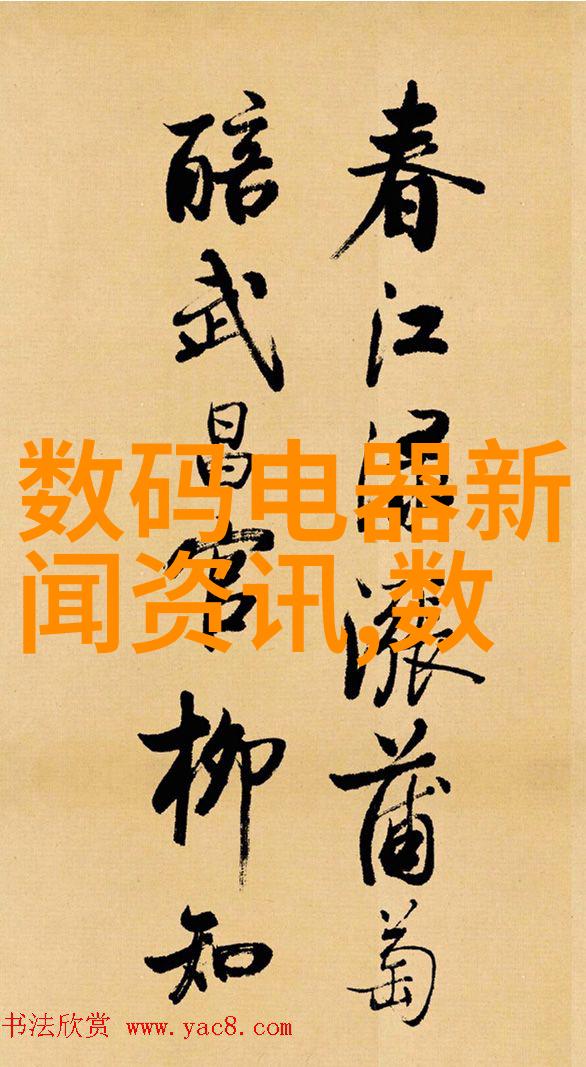 春江渌涨蒲萄
醅武昌官柳知
数码电器新
闻资讯,数
书法欣赏 www.yac8.com